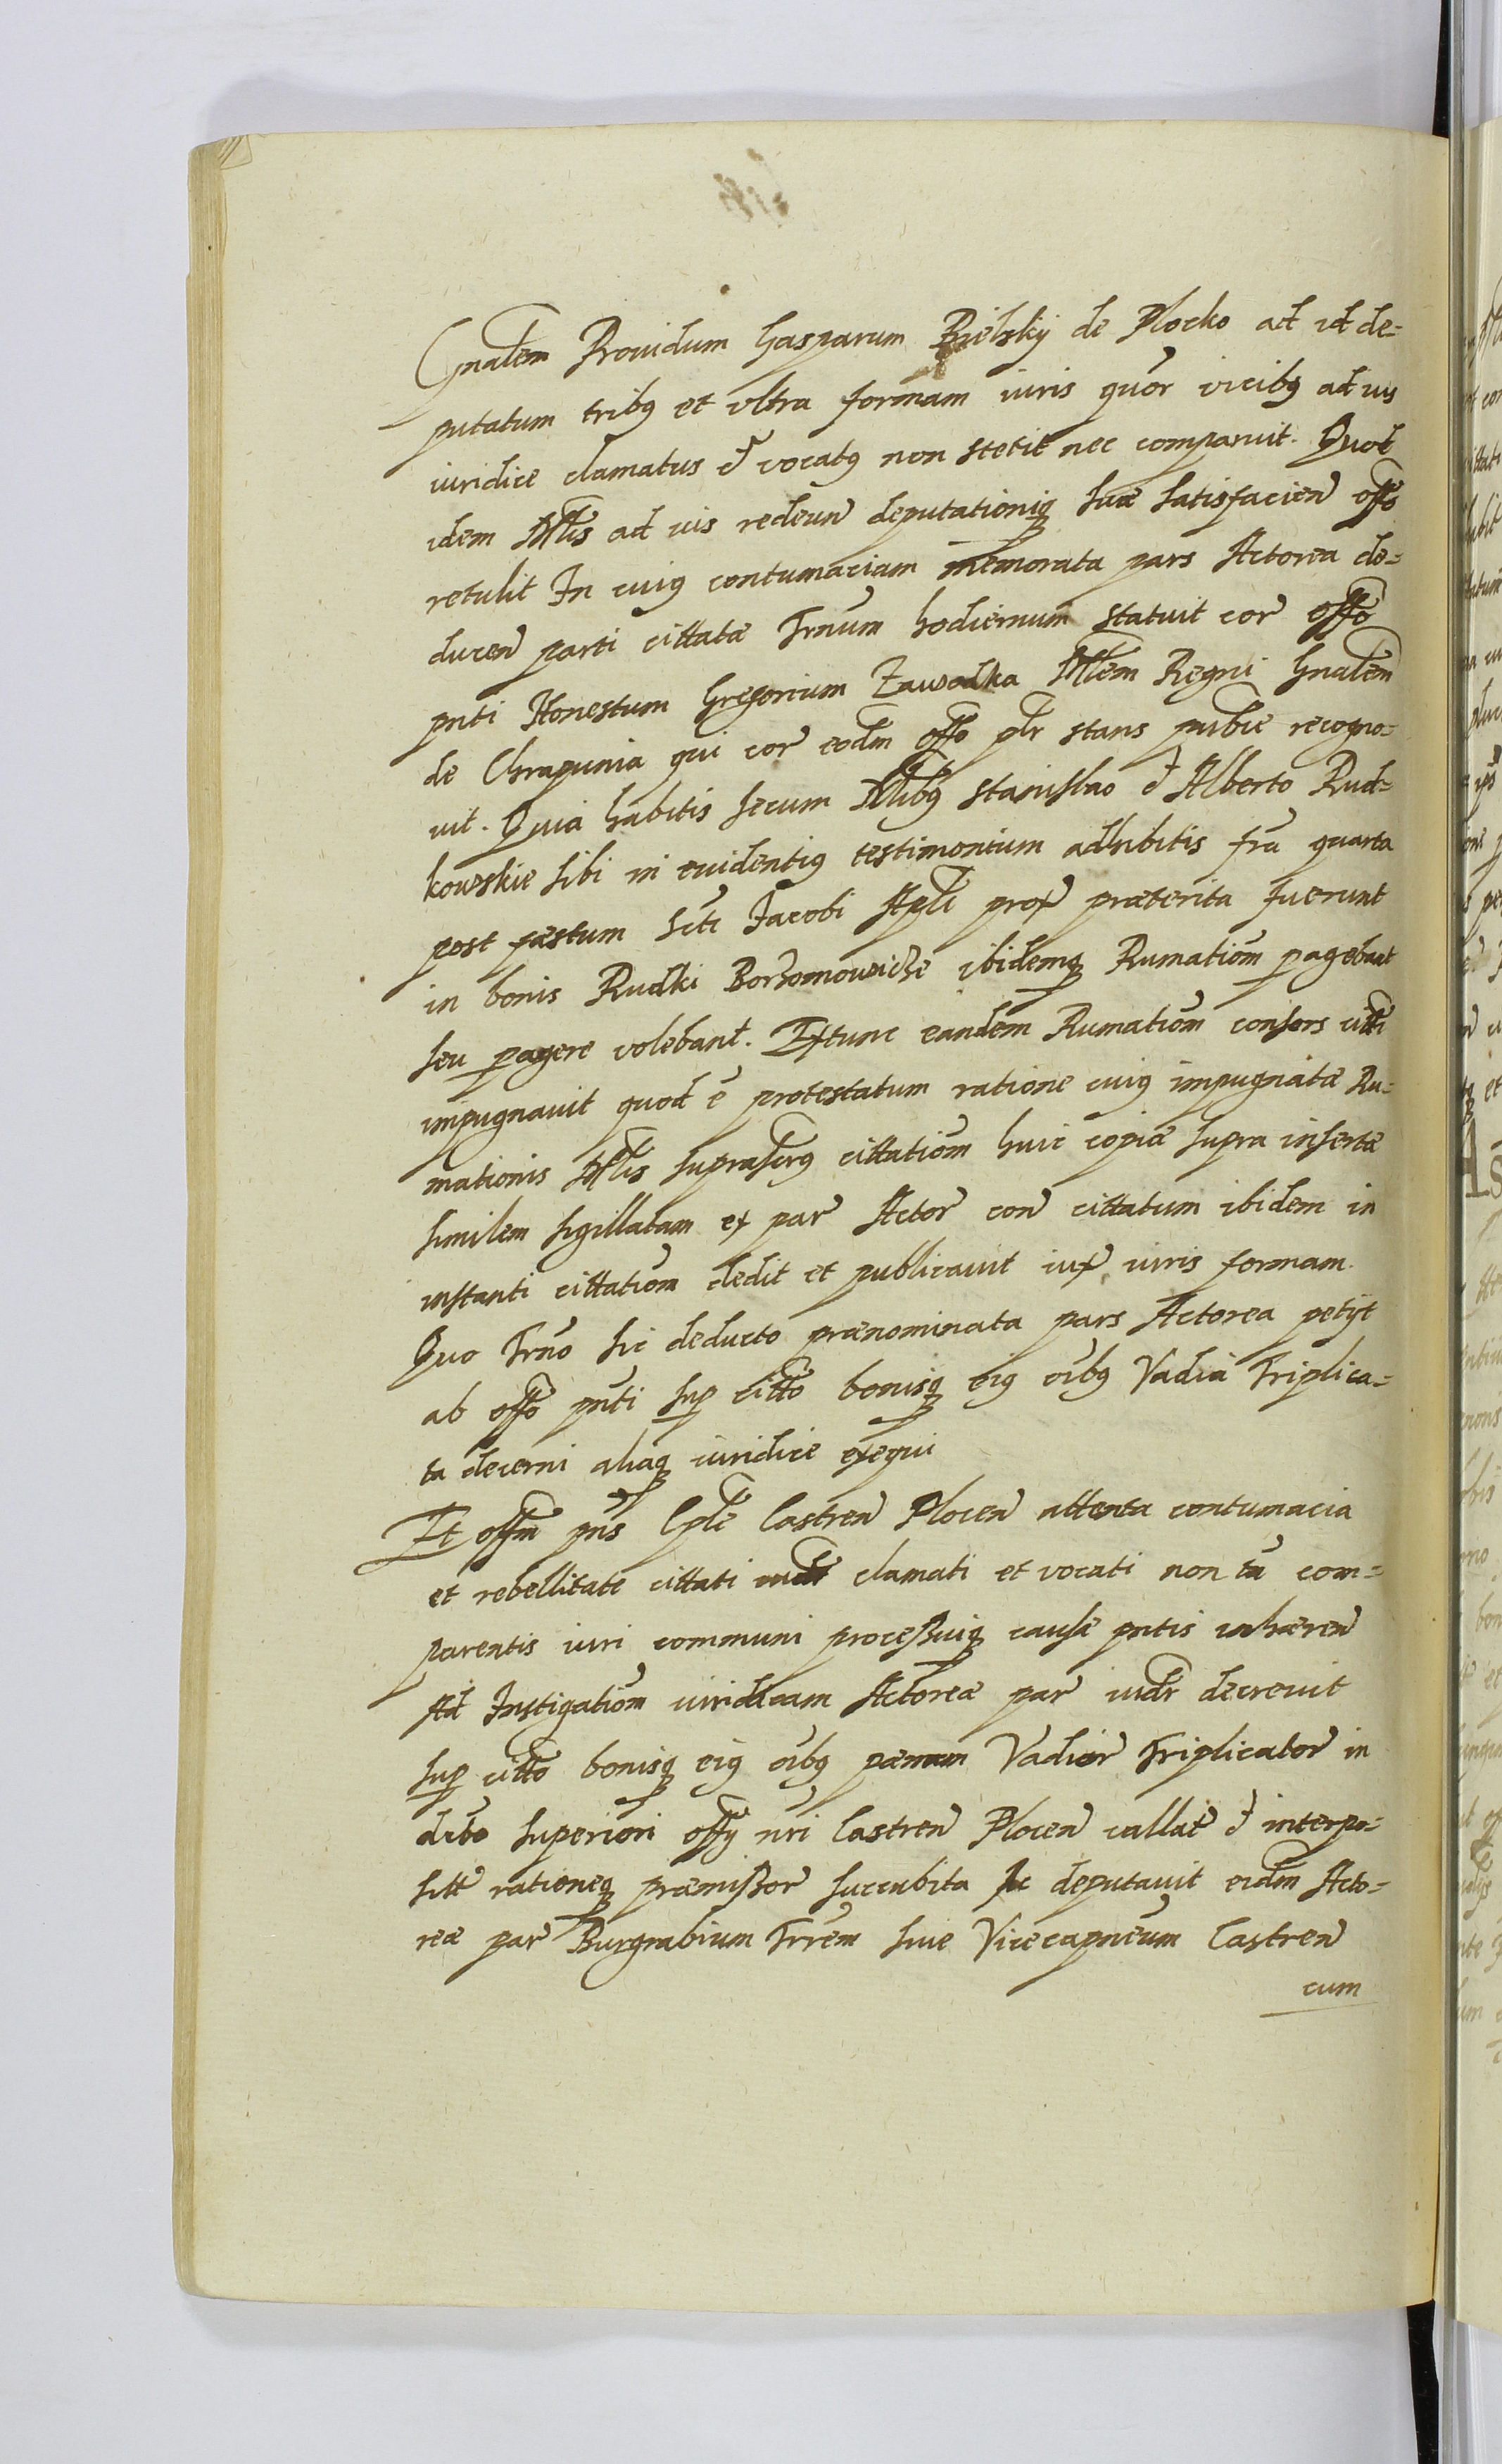 Gnalem Providum Gasparum Bielskij de Plocko ad id de=
putatum tribq et ultra formam iuris quor vicibq ad ius
iuridice clamatus et vocatq non stetit nec comparuit. Quod
idem Mlis ad ius redeun deputationiq suæ satisfacien offo
retulit In cuiq contumaciam memorata pars Actorea de=
ducen parti cittatæ Trnum hodiernum statuit cor offo
pnti Honestum Gregorium Zawodka Mlem Regni Gnalem
de Chrapunia qui cor eodm offo plr stans publce recogno=
uit. Quia habitis secum Nlibq Stanislao et Alberto Rud=
kowskie sibi in euidentiq testimonium adhibitis fra quarta
post fæstum scti Jacobi Apli prox præterita fuerunt
in bonis Rudki Borzomowiche ibidemq Rumatiom pagebant
seu pagere volebant. Extunc eandem Rumatiom consors citti
impugnauit quod e protestatum ratione cuiq impugnatæ Ru=
mationis Mlis suprascrq cittatiom huic copiæ supra insertæ
similem sigillatam ex par Actor con cittatum ibidem in
instanti cittatiom dedit et publicauit iux iuris formam.
Quo Trno sic deducto prænominata pars Actorea petijt
ab offo pnti sup citto bonisq eiq oibq Vadia Triplica=
ta decerni aliaq iuridice exequi
Et offm pns Cple Castren Plocen attenta contumacia
et rebellitate cittati clamati et vocati non tn com=
parentis iuri communi processuiq causæ pntis inhæren
Ad Instigatiom iuridicam Actoreæ par iudr decreuit
sup citto bonisq eiq oibq pænam Vadior Triplicator in
dcbo superiori offij nri Castren Plocen vallat et interpo=
sitt rationeq præmissor succubita hc deputauit eidm Acto=
reæ par Burgrabium Trrem siue Vicecapneum Castren
cum